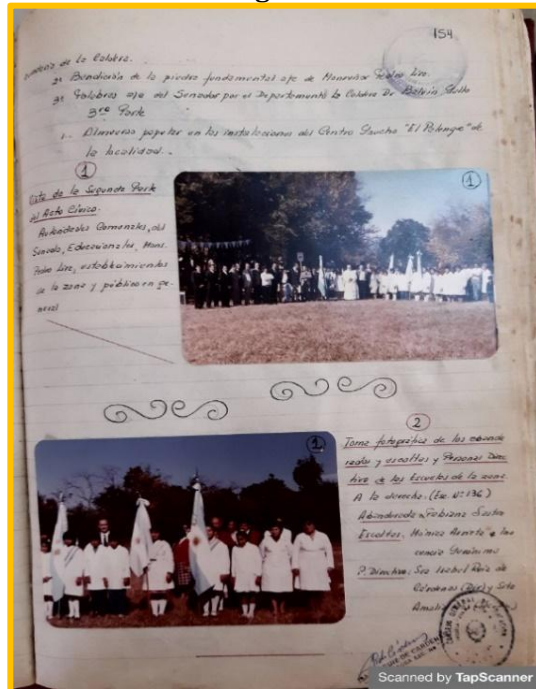 154
de la Caldera.
2º Bendición de la piedra fundamental a/c de Monseñor Pedro Lira.
3º Palabras a/c del Senador por el Departamento la Caldera Dr.
3ra Parte
1.- Almuerzo popular en las instalaciones del Centro Gaucho "El Potengue" de
la localidad.-
1
Vista de la Segunda Parte
del Acto Cívico.
Autoridades Comunales, del
Senado, Educacionales, Mons.
Pedro Lira, establecimientos
de la zona y público en ge-
neral
1
2
Toma fotográfica de las abande-
radas y escoltas y Personal Direc-
tivo de las Escuelas de la zona.
A la derecha: (Esc. Nº 136)
Abanderada: Fabiana
Escoltas: Mónica e Ino-
cencio Gerónimo
P. Directivo: Sra Isabel Ruiz de
Cárdenas (Dir) y Srta
CONSEJO GENERAL DE
Scanned by TapScanner